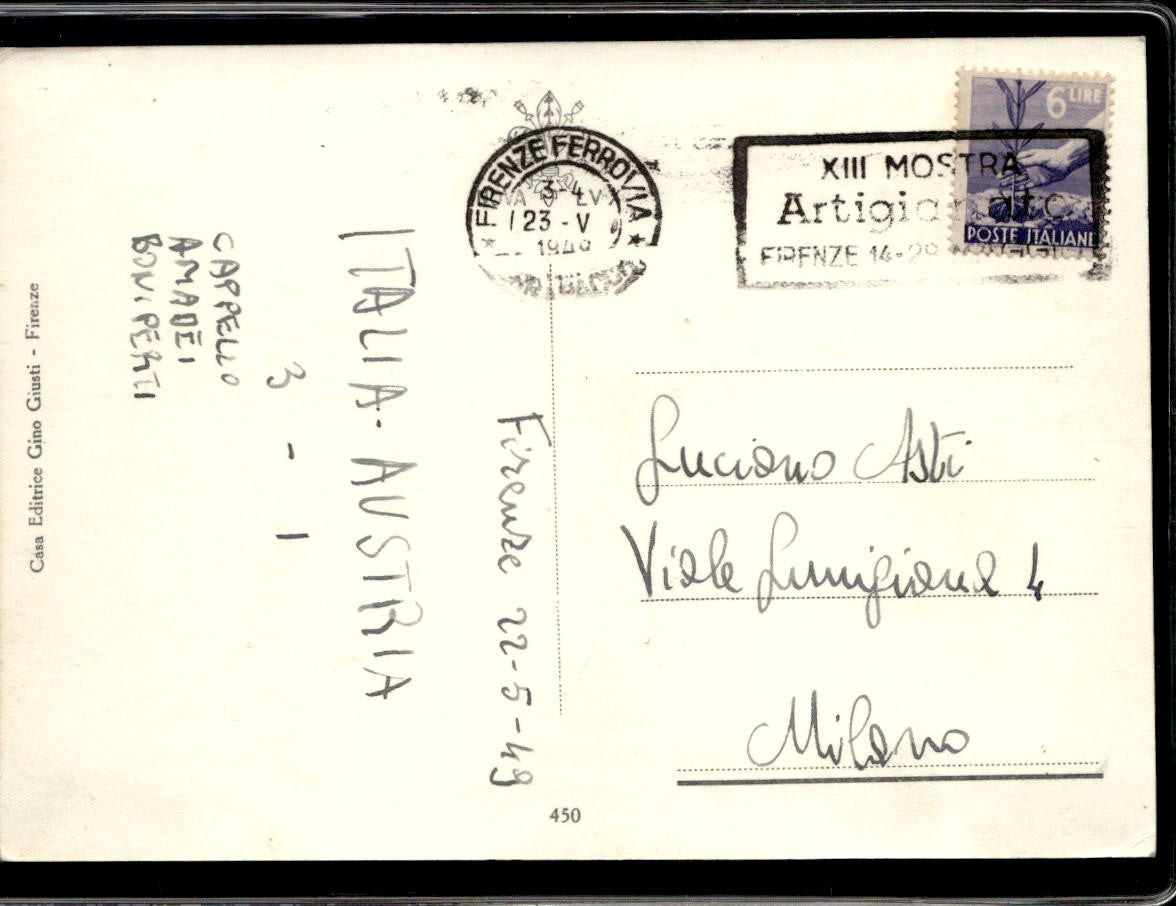 Casa Editrice Gino Giusti - Firenze
Firenze 22-5-49
ITALIA - AUSTRIA
3 - 1
CAPPELLO
AMADEI
BONIPERTI
FIRENZE FERROVIA
3-4
23 -V
1949
XIII MOSTRA
Artigianato
FIRENZE 14-29
6 LIRE
POSTE ITALIANE
Luciano Asti
Viale Lunigiana 4
Milano
450